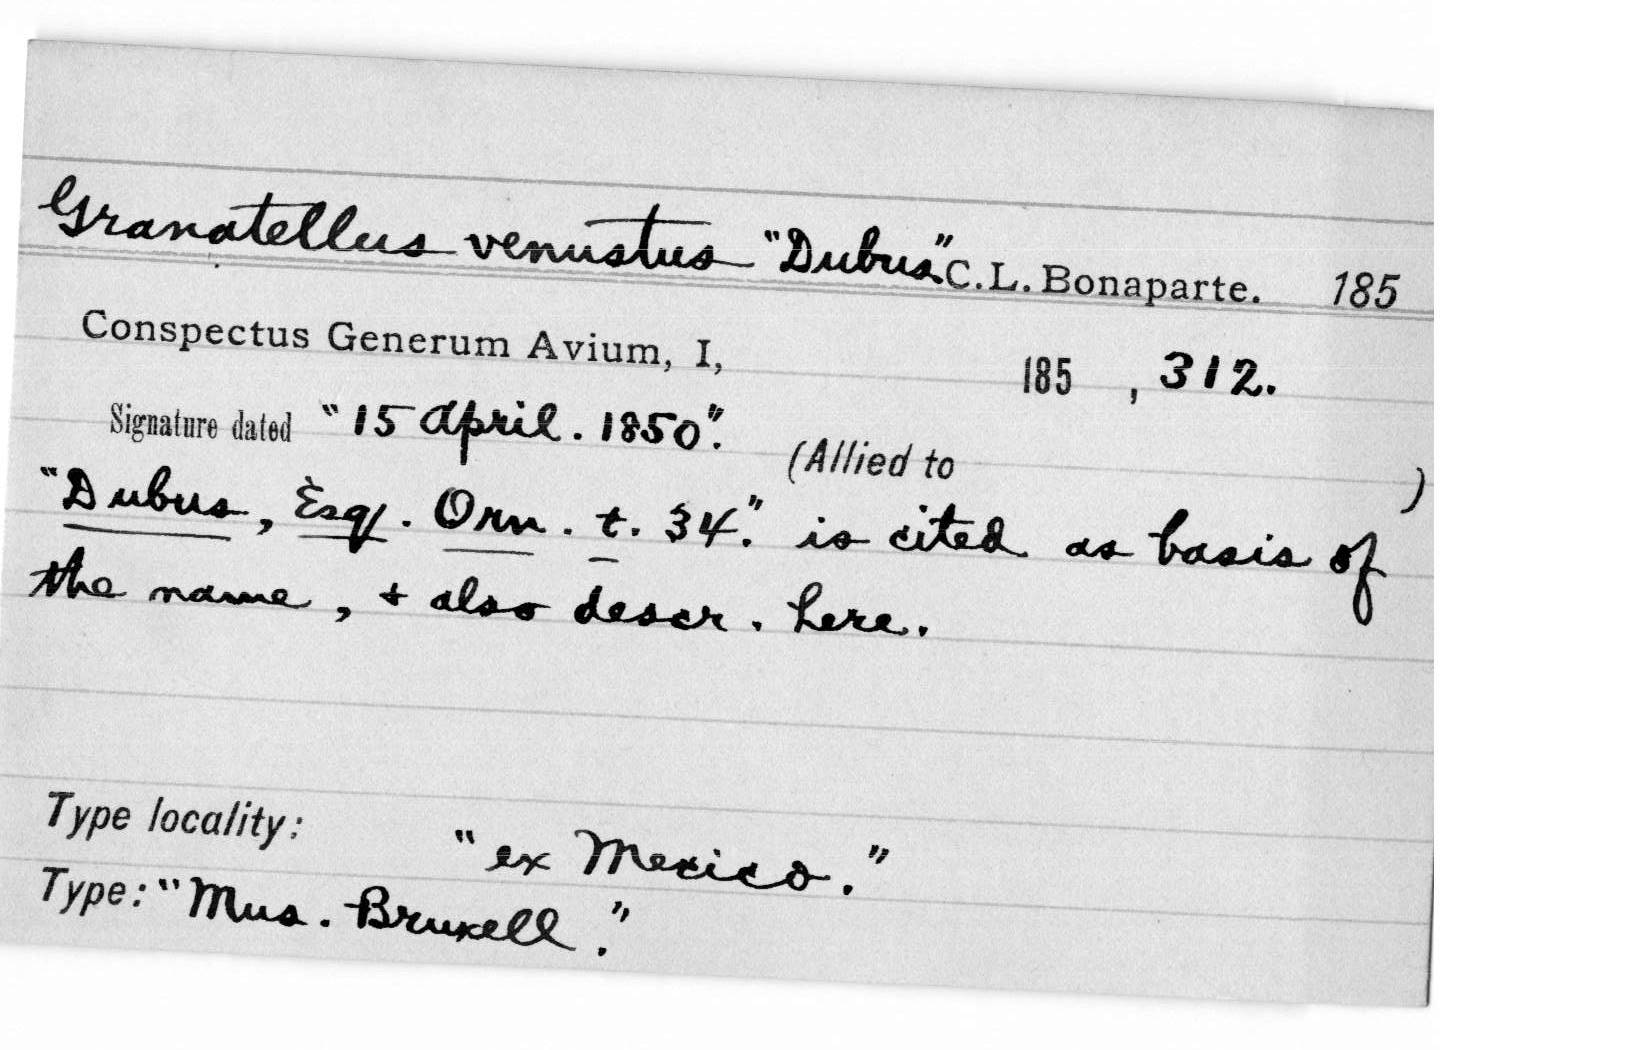 Granatellus venustus "Dubus" C. L. Bonaparte. 185
Conspectus Generum Avium, I, 185 , 312.
Signature dated "15 April. 1850". (Allied to )
"Dubus, Esq. Orn. t. 34." is cited as basis of
the name, + also descr. here.
Type locality: "ex Mexico."
Type: "Mus. Bruxell."